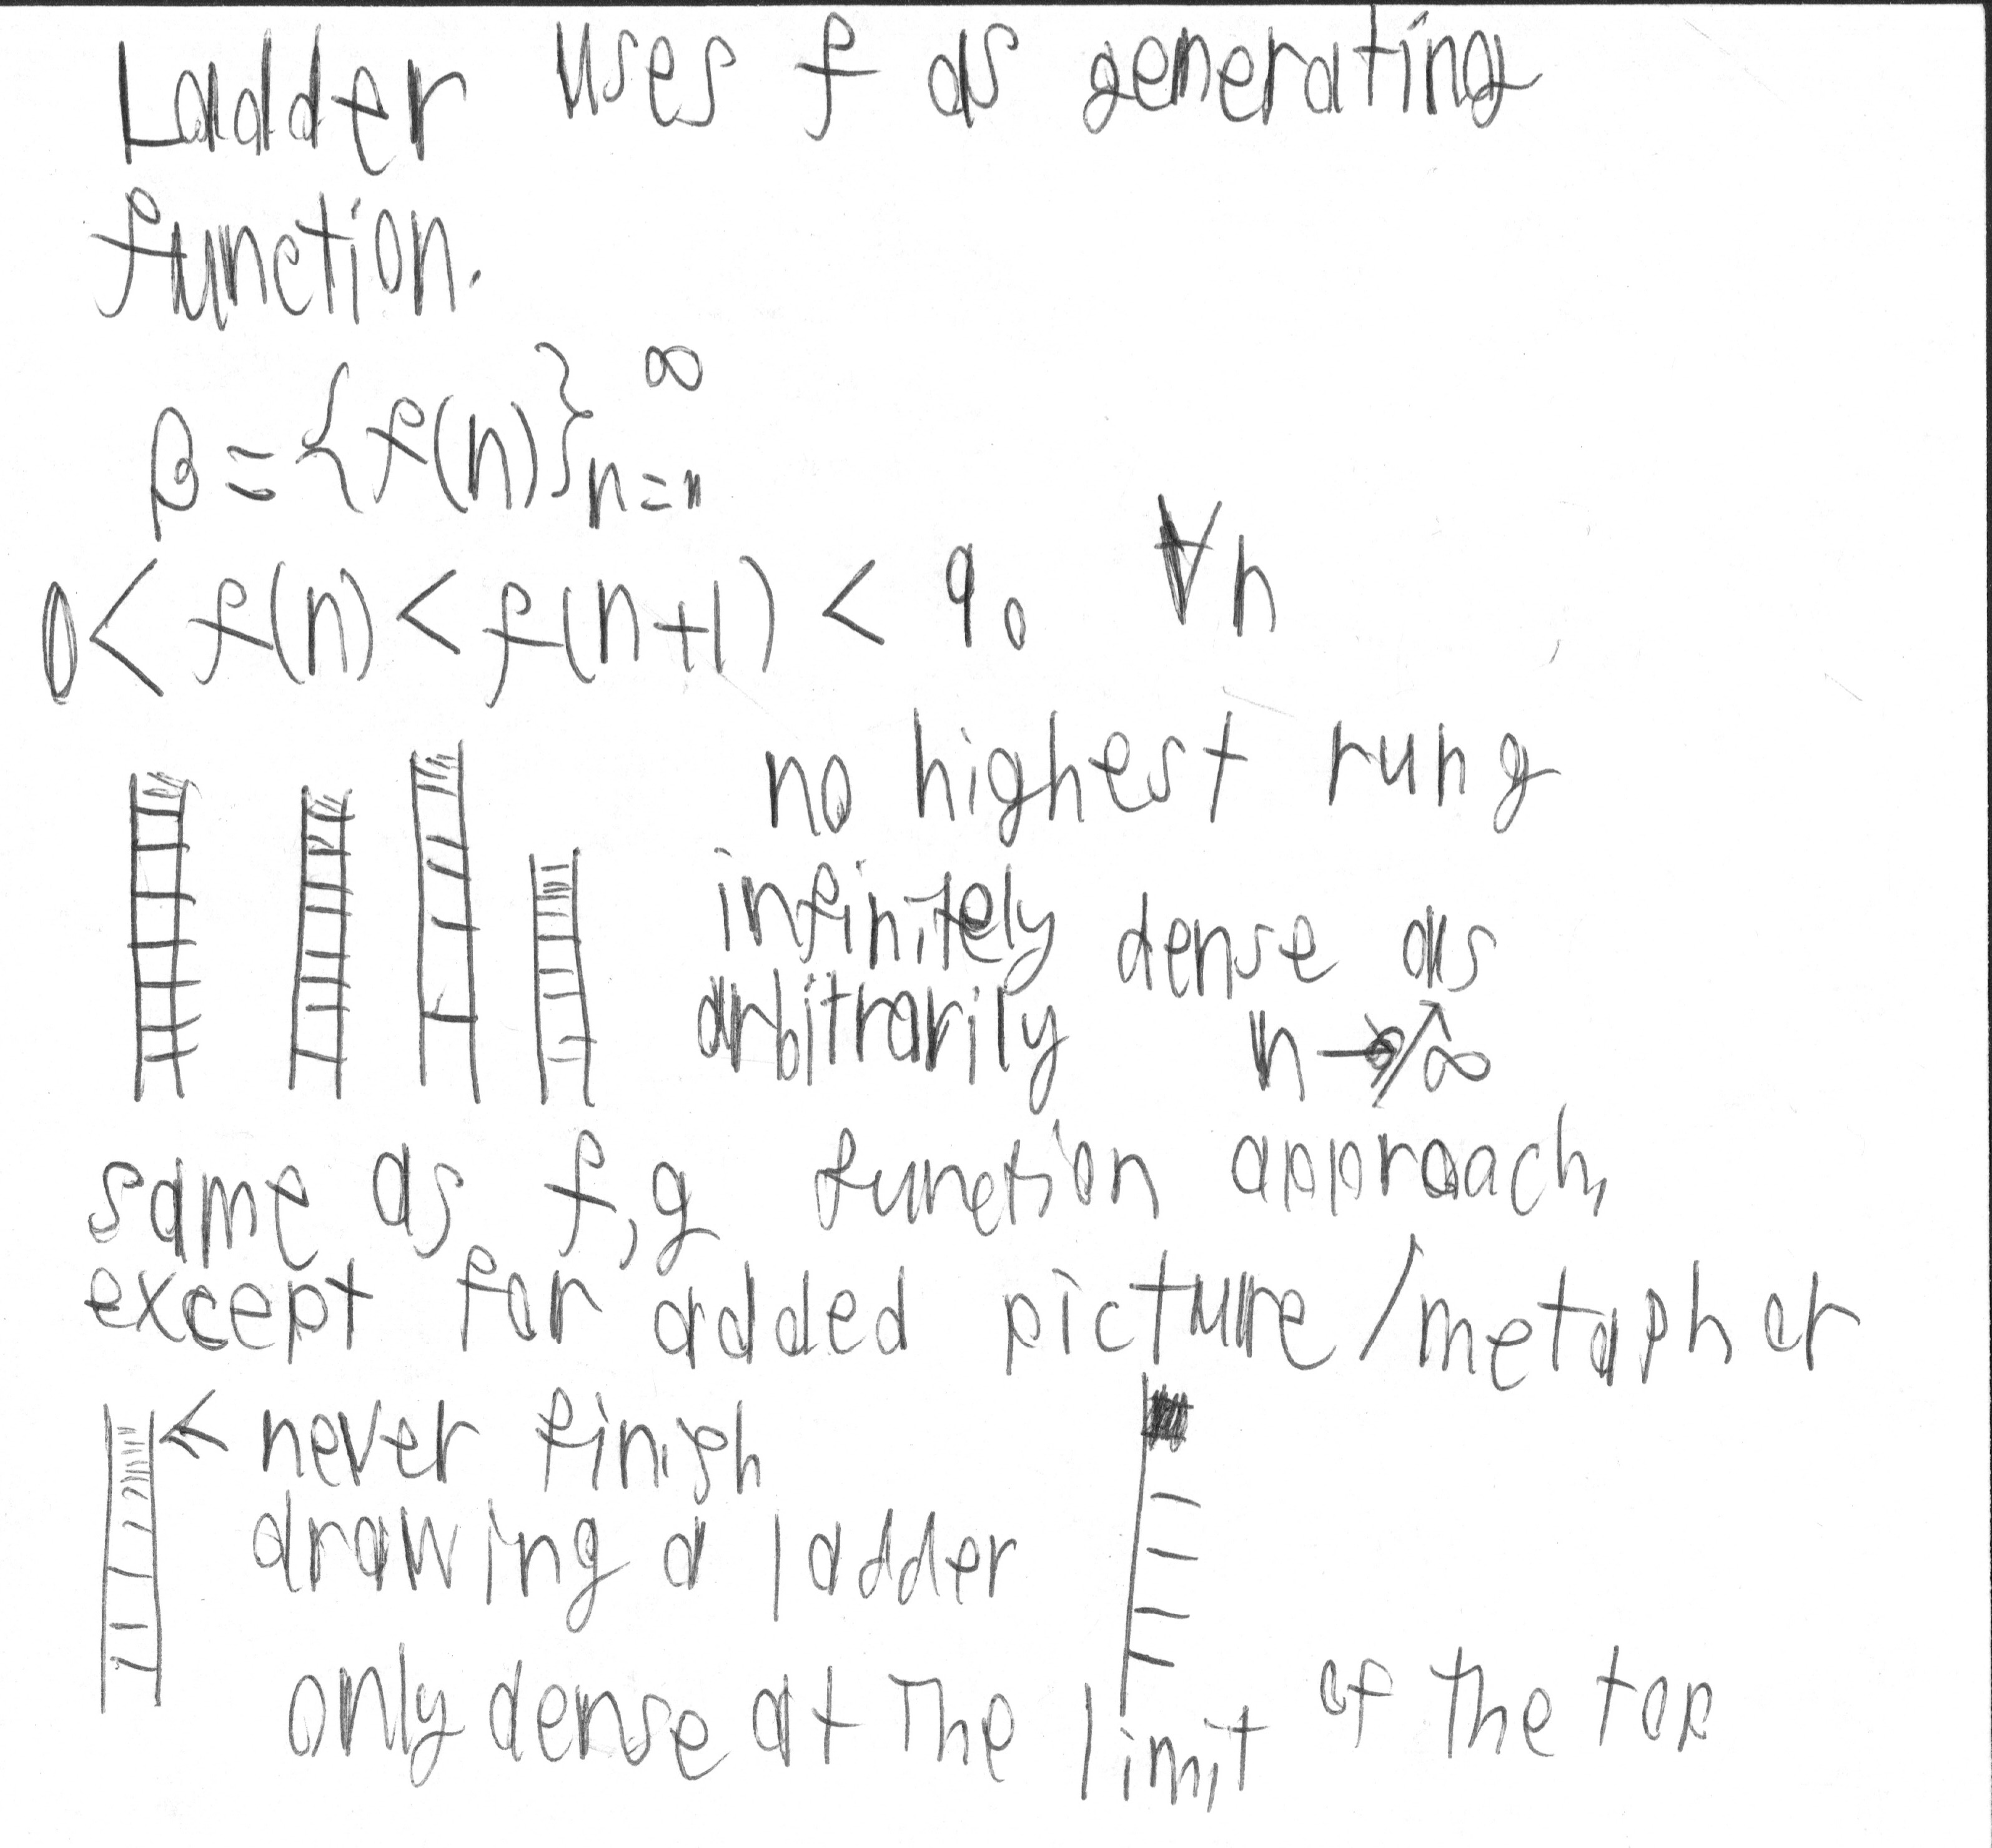 Ladder uses f as generating
function.
β = {f(n)}_{n="}^∞
0 < f(n) < f(n+1) < q₀ ∀n
no highest rung
infinitely dense as
arbitrarily n→∞
same as f,g function approach,
except for added picture/metaphor
← never finish
drawing a ladder
only dense at the limit of the top